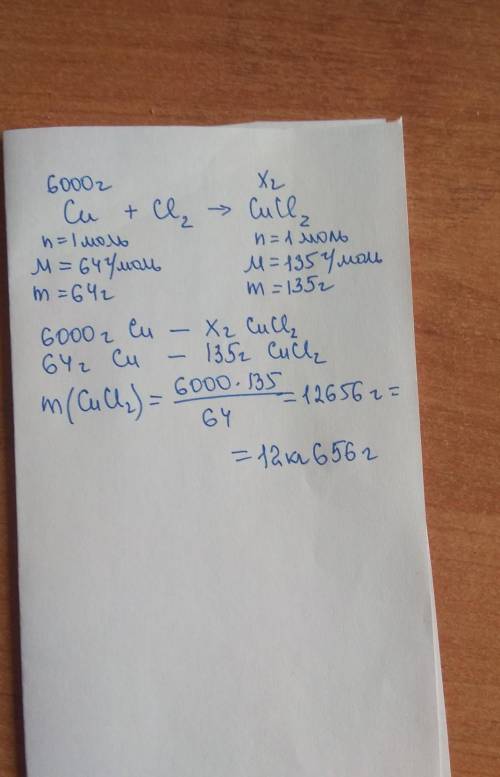 6000г Xг
Cu + Cl₂ → CuCl₂
n = 1 моль n = 1 моль
M = 64 г/моль M = 135 г/моль
m = 64г m = 135г
6000г Cu — Xг CuCl₂
64г Cu — 135г CuCl₂
m(CuCl₂) = 6000·135/64 = 12656г =
= 12кг 656г